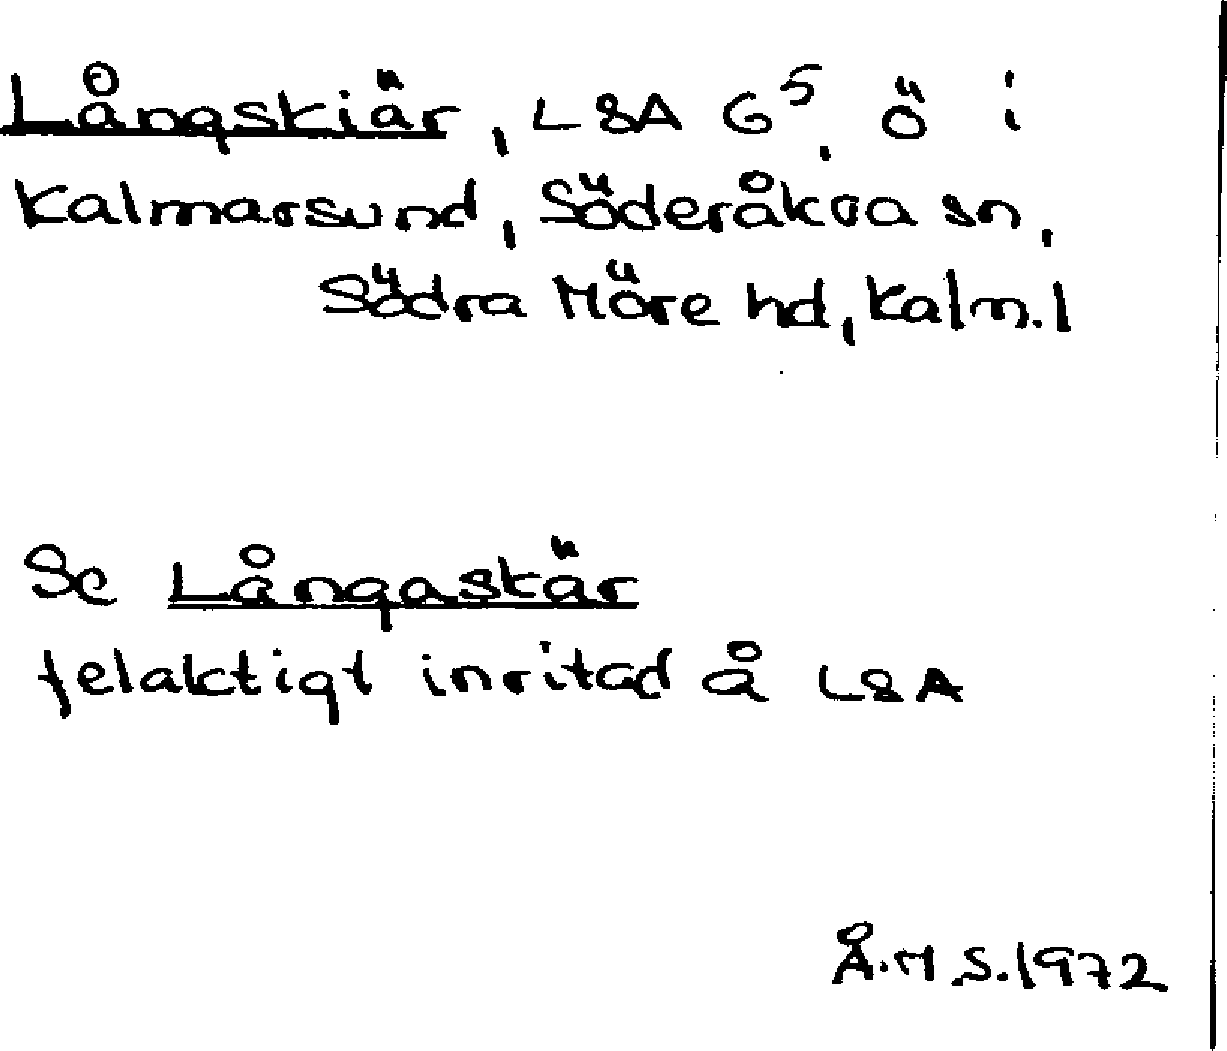 Långskiär, LSA G5, ö i
Kalmarsund, Söderåkra sn,
Södra Möre hd, Kalm. l
Se Långaskär
felaktigt inritad å LSA
Å.M S. 1972